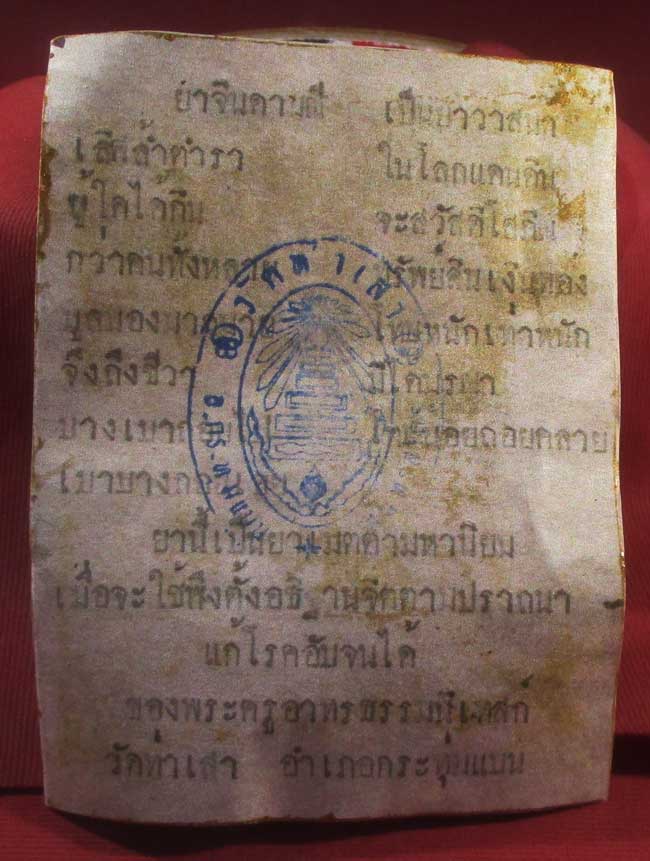 ยาจินดามณี เป็นยาวาสนา
เลิศล้ำตำรา ในโลกแดนดิน
ผู้ใดได้กิน จะสวัสดีโสภิณ
กว่าคนทั้งหลาย ทรัพย์สินเงินทอง
มูลมองมากมาย โทษหนักเท่าหนัก
จึงถึงชีวา มีโต
บางเบา ให้น้อยถอยคลาย
เบาบาง
ยานี้เป็นยาเมตตามหานิยม
เมื่อจะใช้พึงตั้งอธิ านจิตตามปราถนา
แก้โรคอับจนได้
ของพระครูอาทรธรรมนิเทสก์
วัดท่าเสา อำเภอกระทุ่มแบน
วัดท่าเสา